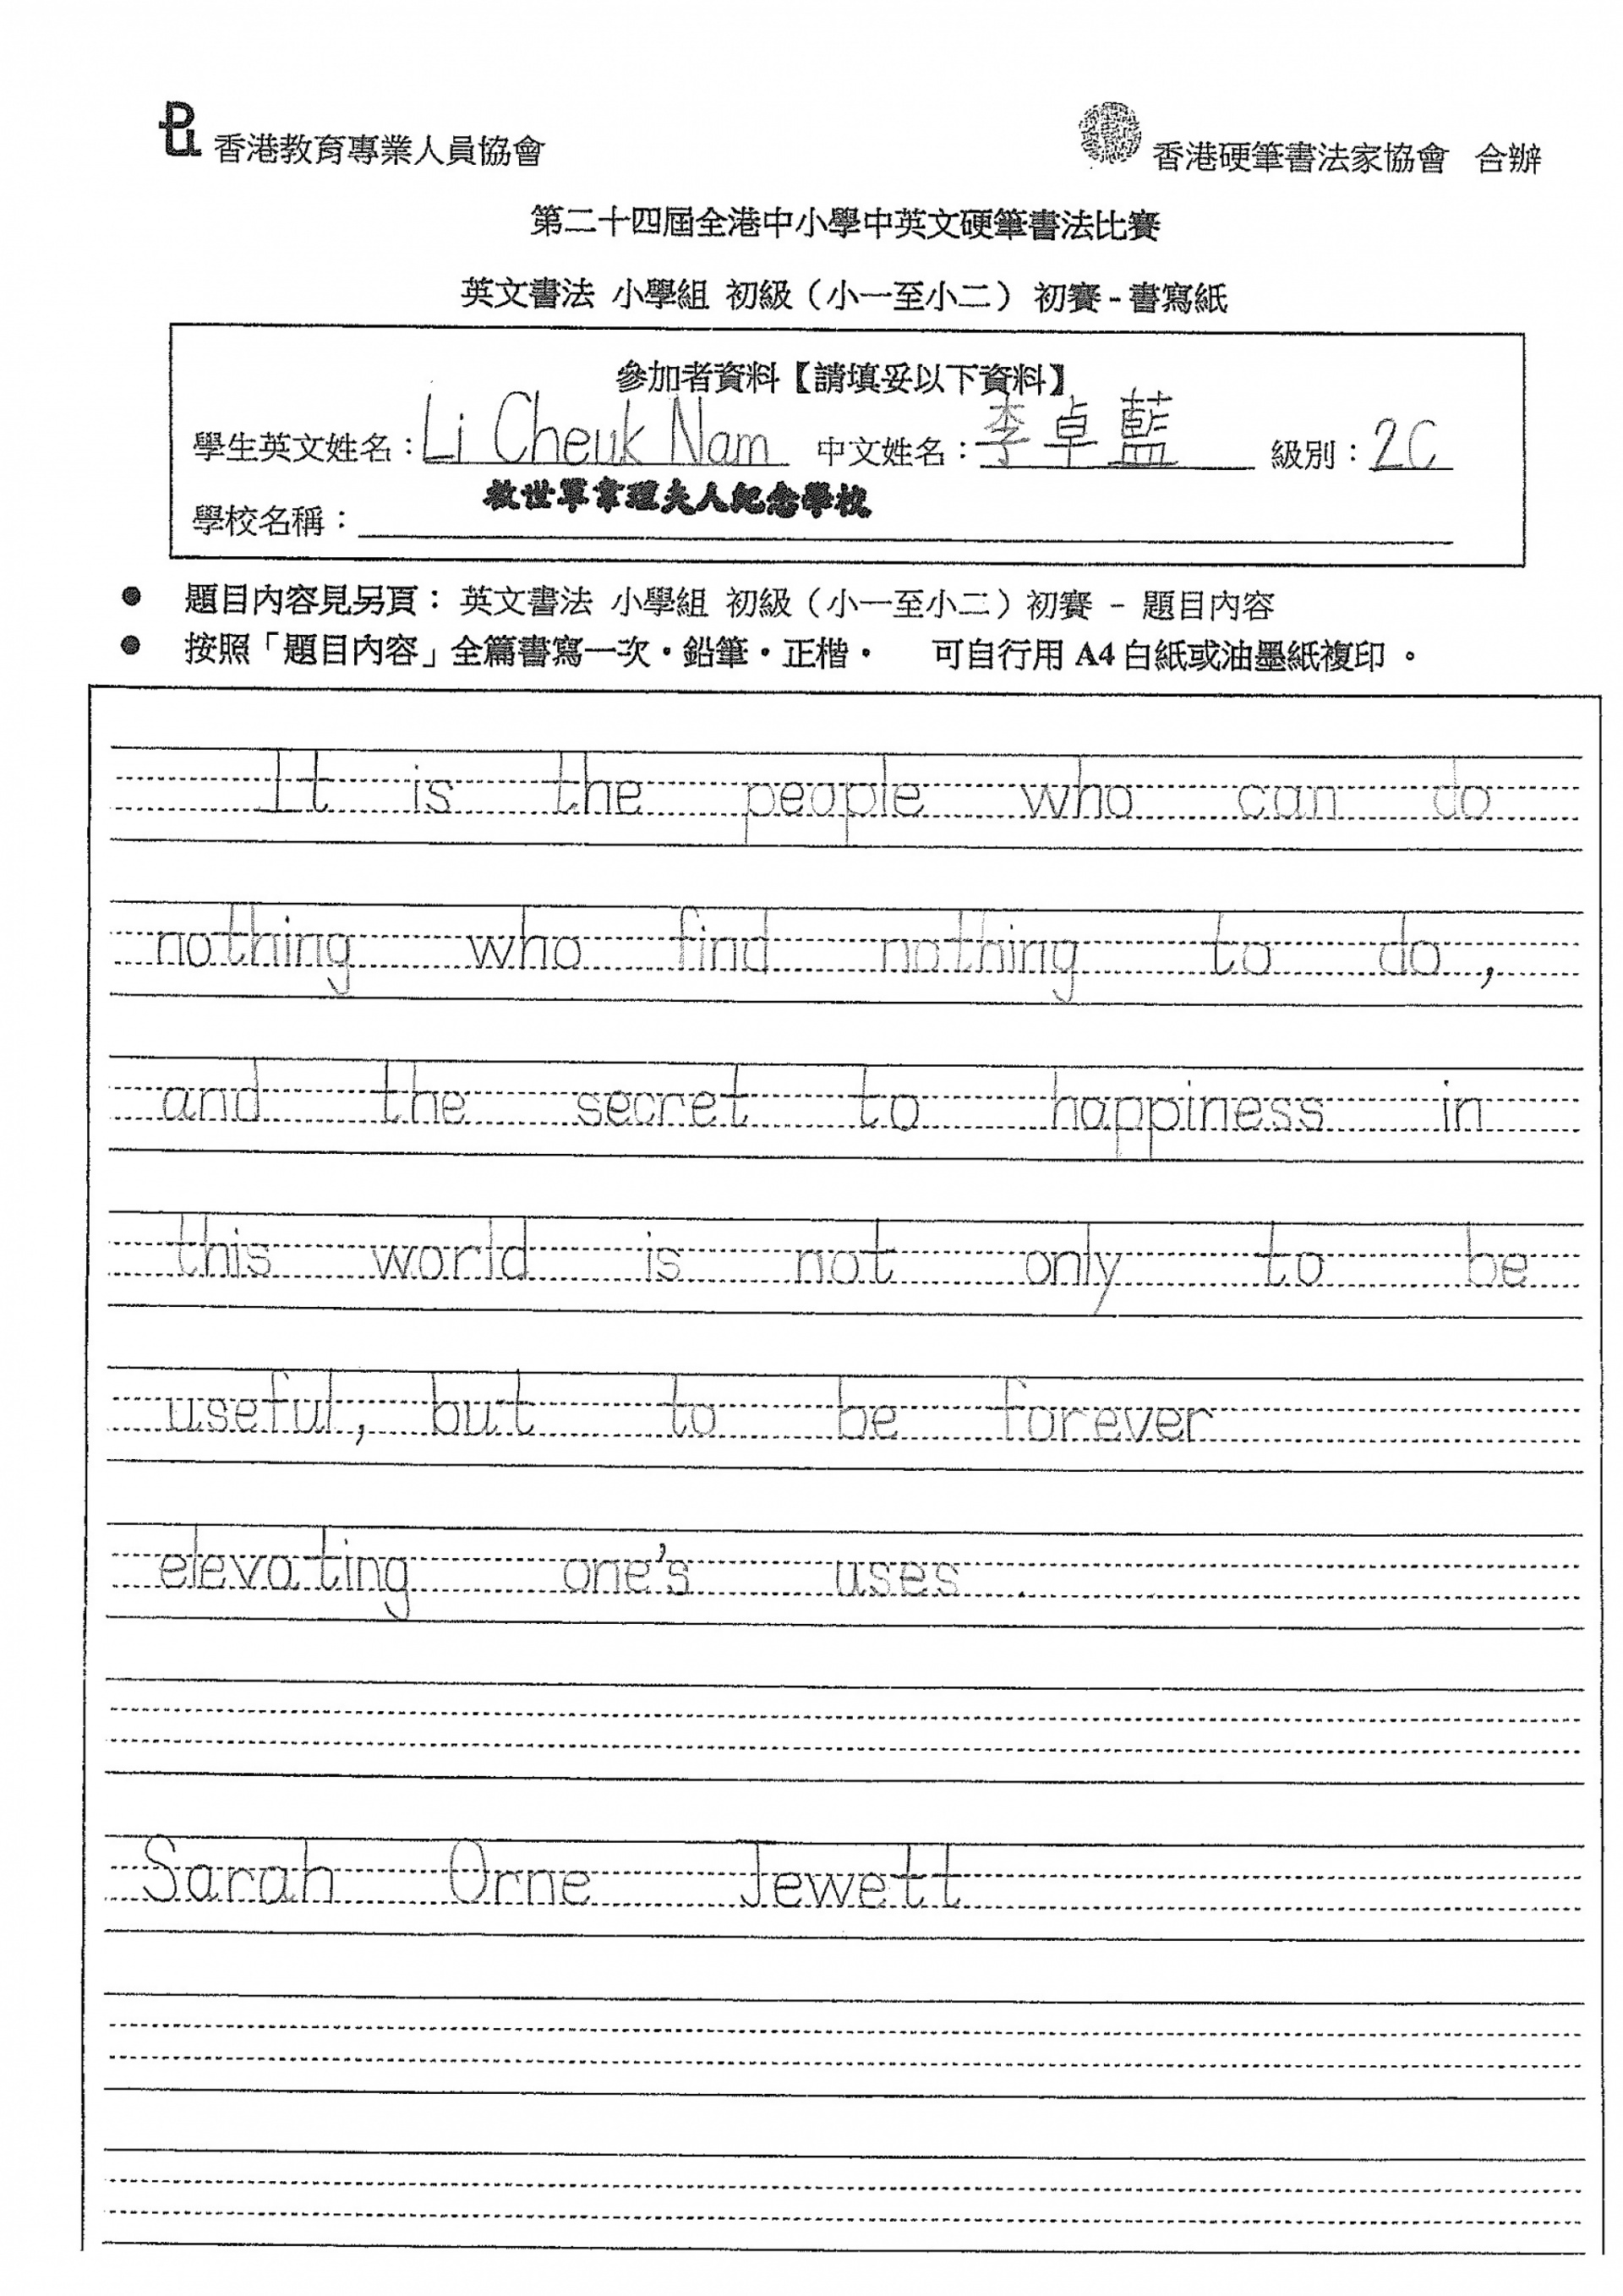 香港教育專業人員協會
香港硬筆書法家協會 合辦
第二十四屆全港中小學中英文硬筆書法比賽
英文書法 小學組 初級（小一至小二） 初賽 - 書寫紙
參加者資料【請填妥以下資料】
學生英文姓名：Li Cheuk Nam 中文姓名：李卓藍 級別：2C
學校名稱：救世軍韋理夫人紀念學校
● 題目內容見另頁： 英文書法 小學組 初級（小一至小二）初賽 － 題目內容
● 按照「題目內容」全篇書寫一次‧鉛筆‧正楷‧ 可自行用 A4 白紙或油墨紙複印。
It is the people who can do
nothing who find nothing to do,
and the secret to happiness in
this world is not only to be
useful, but to be forever
elevating one's uses.
Sarah Orne Jewett